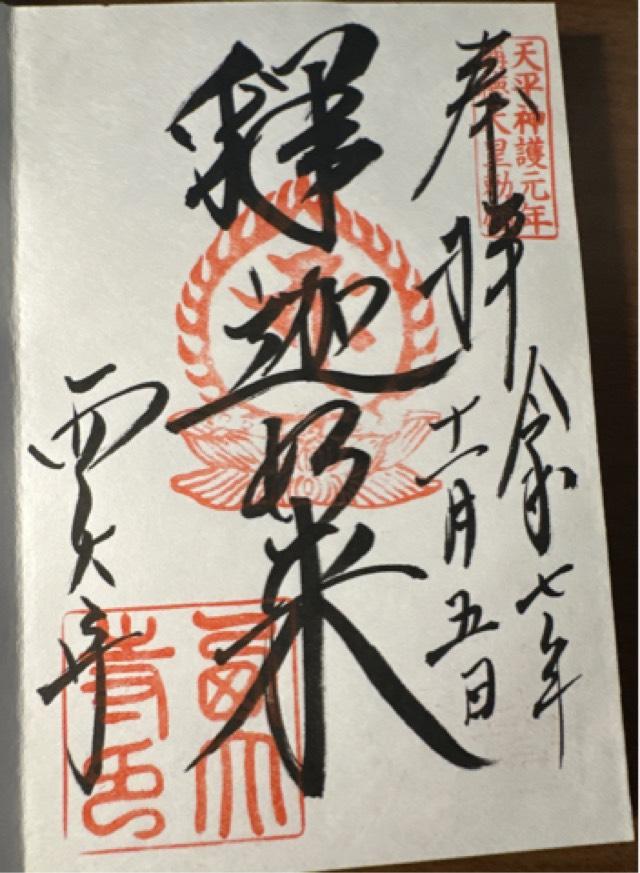 天平神護元年
奉拝
令和七年
十一月五日
釋迦如来
西大寺
西大寺印